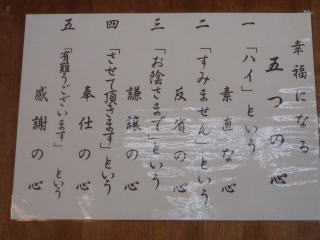 幸福になる
五つの心
一「ハイ」という
素直な心
二「すみません」という
反省の心
三「お陰さまで」という
謙譲の心
四「させて頂きます」という
奉仕の心
五「有難うございます」という
感謝の心